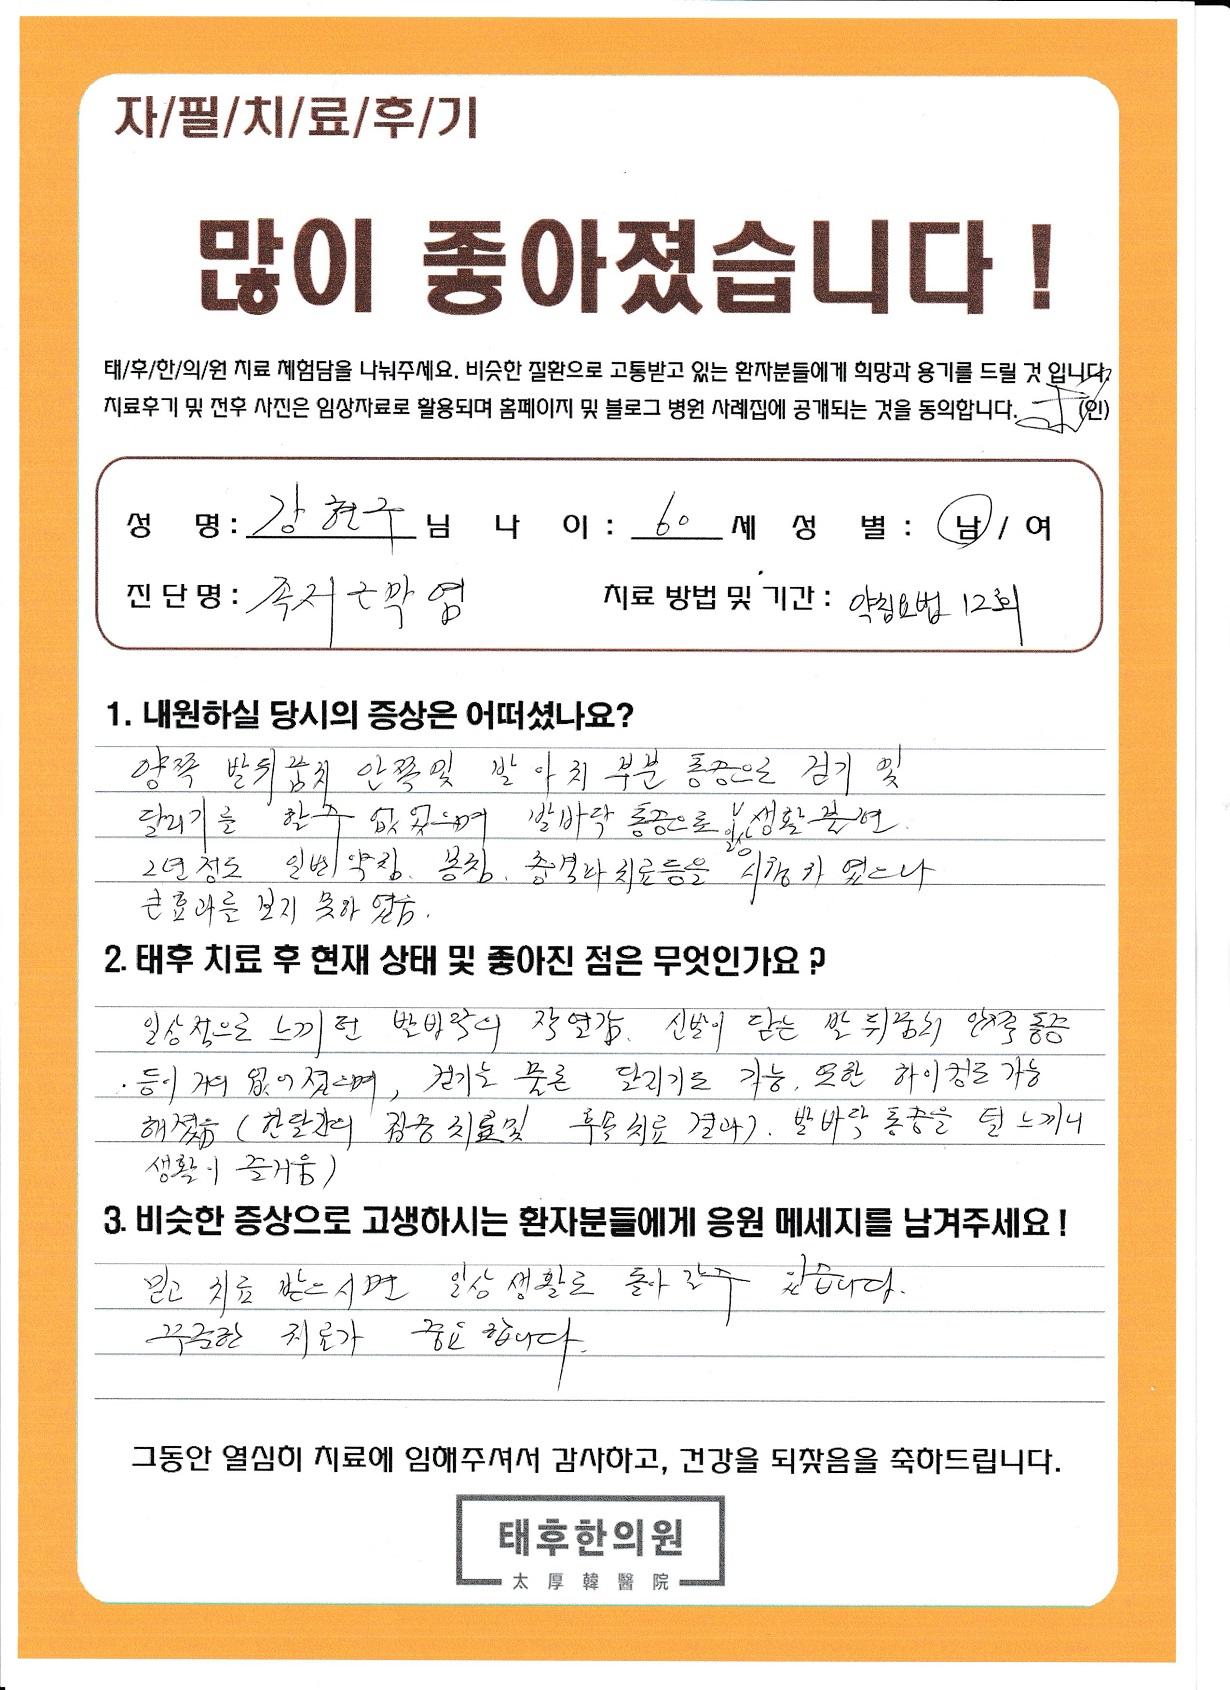 자/필/치/료/후/기
많이 좋아졌습니다 !
태/후/한/의/원 치료 체험담을 나눠주세요. 비슷한 질환으로 고통받고 있는 환자분들에게 희망과 용기를 드릴 것 입니다.
치료후기 및 전후 사진은 임상자료로 활용되며 홈페이지 및 블로그 병원 사례집에 공개되는 것을 동의합니다. (인)
성 명 : 강현구 님 나 이 : 60 세 성 별 : 남 / 여
진단명 : 족저근막염 치료 방법 및 기간 : 약침요법 12회
1. 내원하실 당시의 증상은 어떠셨나요?
양쪽 발뒤꿈치 안쪽 및 발 아치 부분 통증으로 걷기 및
달리기를 할수 없었으며 발바닥 통증으로 일상생활불편.
2년정도 일반약침. 봉침. 충격파치료등을 시행하였으나
큰효과를 보지 못하였음.
2. 태후 치료 후 현재 상태 및 좋아진 점은 무엇인가요 ?
일상적으로 느끼던 발바닥의 작열감. 신발이 닫는 발뒤꿈치 안쪽통증
등이 거의 없어졌으며, 걷기는 물론 달리기도 가능. 또한 하이킹도 가능
해졌음 (한달간의 집중치료및 후속치료 결과). 발바닥 통증을 덜 느끼니
생활이 즐거움)
3. 비슷한 증상으로 고생하시는 환자분들에게 응원 메세지를 남겨주세요 !
믿고 치료 받으시면 일상생활로 돌아갈수 있습니다.
꾸준한 치료가 중요합니다.
그동안 열심히 치료에 임해주셔서 감사하고, 건강을 되찾음을 축하드립니다.
태후한의원
太厚韓醫院